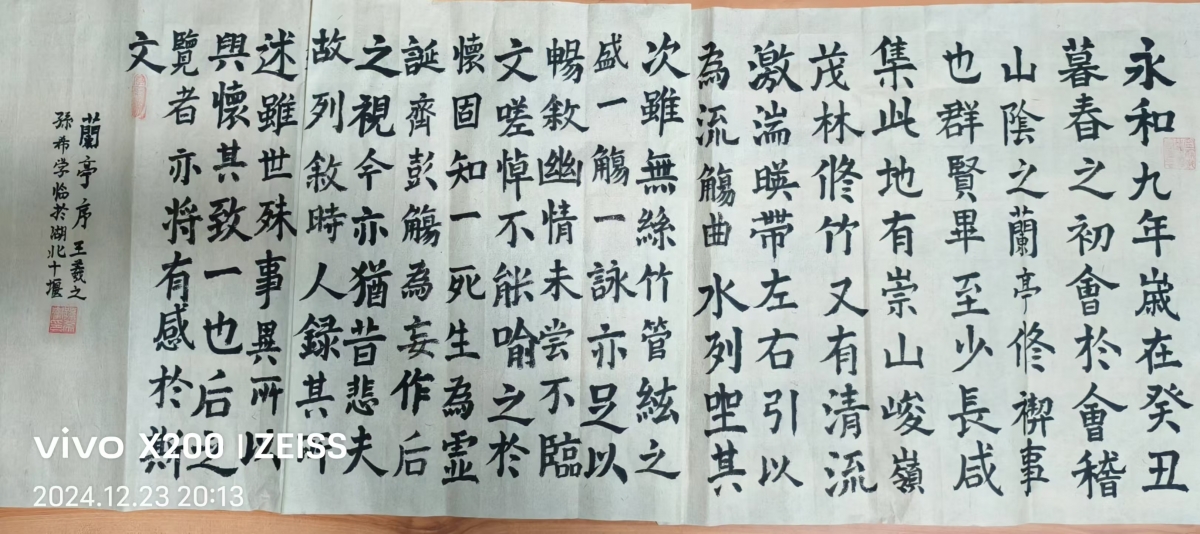 永和九年歲在癸丑
暮春之初會於會稽
山陰之蘭亭修禊事
也群賢畢至少長咸
集此地有崇山峻嶺
茂林修竹又有清流
激湍暎帶左右引以
為流觴曲水列坐其
次雖無絲竹管絃之
盛一觴一詠亦足以
暢敘幽情未尝不臨
文嗟悼不能喻之於
懷固知一死生為虛
誕齊彭觴為妄作后
之視今亦猶昔悲夫
故列敘時人録其所
述雖世殊事異所以
興懷其致一也后之
覽者亦将有感於斯
文
蘭亭序王羲之
孫希学临於湖北十堰
vivo X200 | ZEISS
2024.12.23 20:13